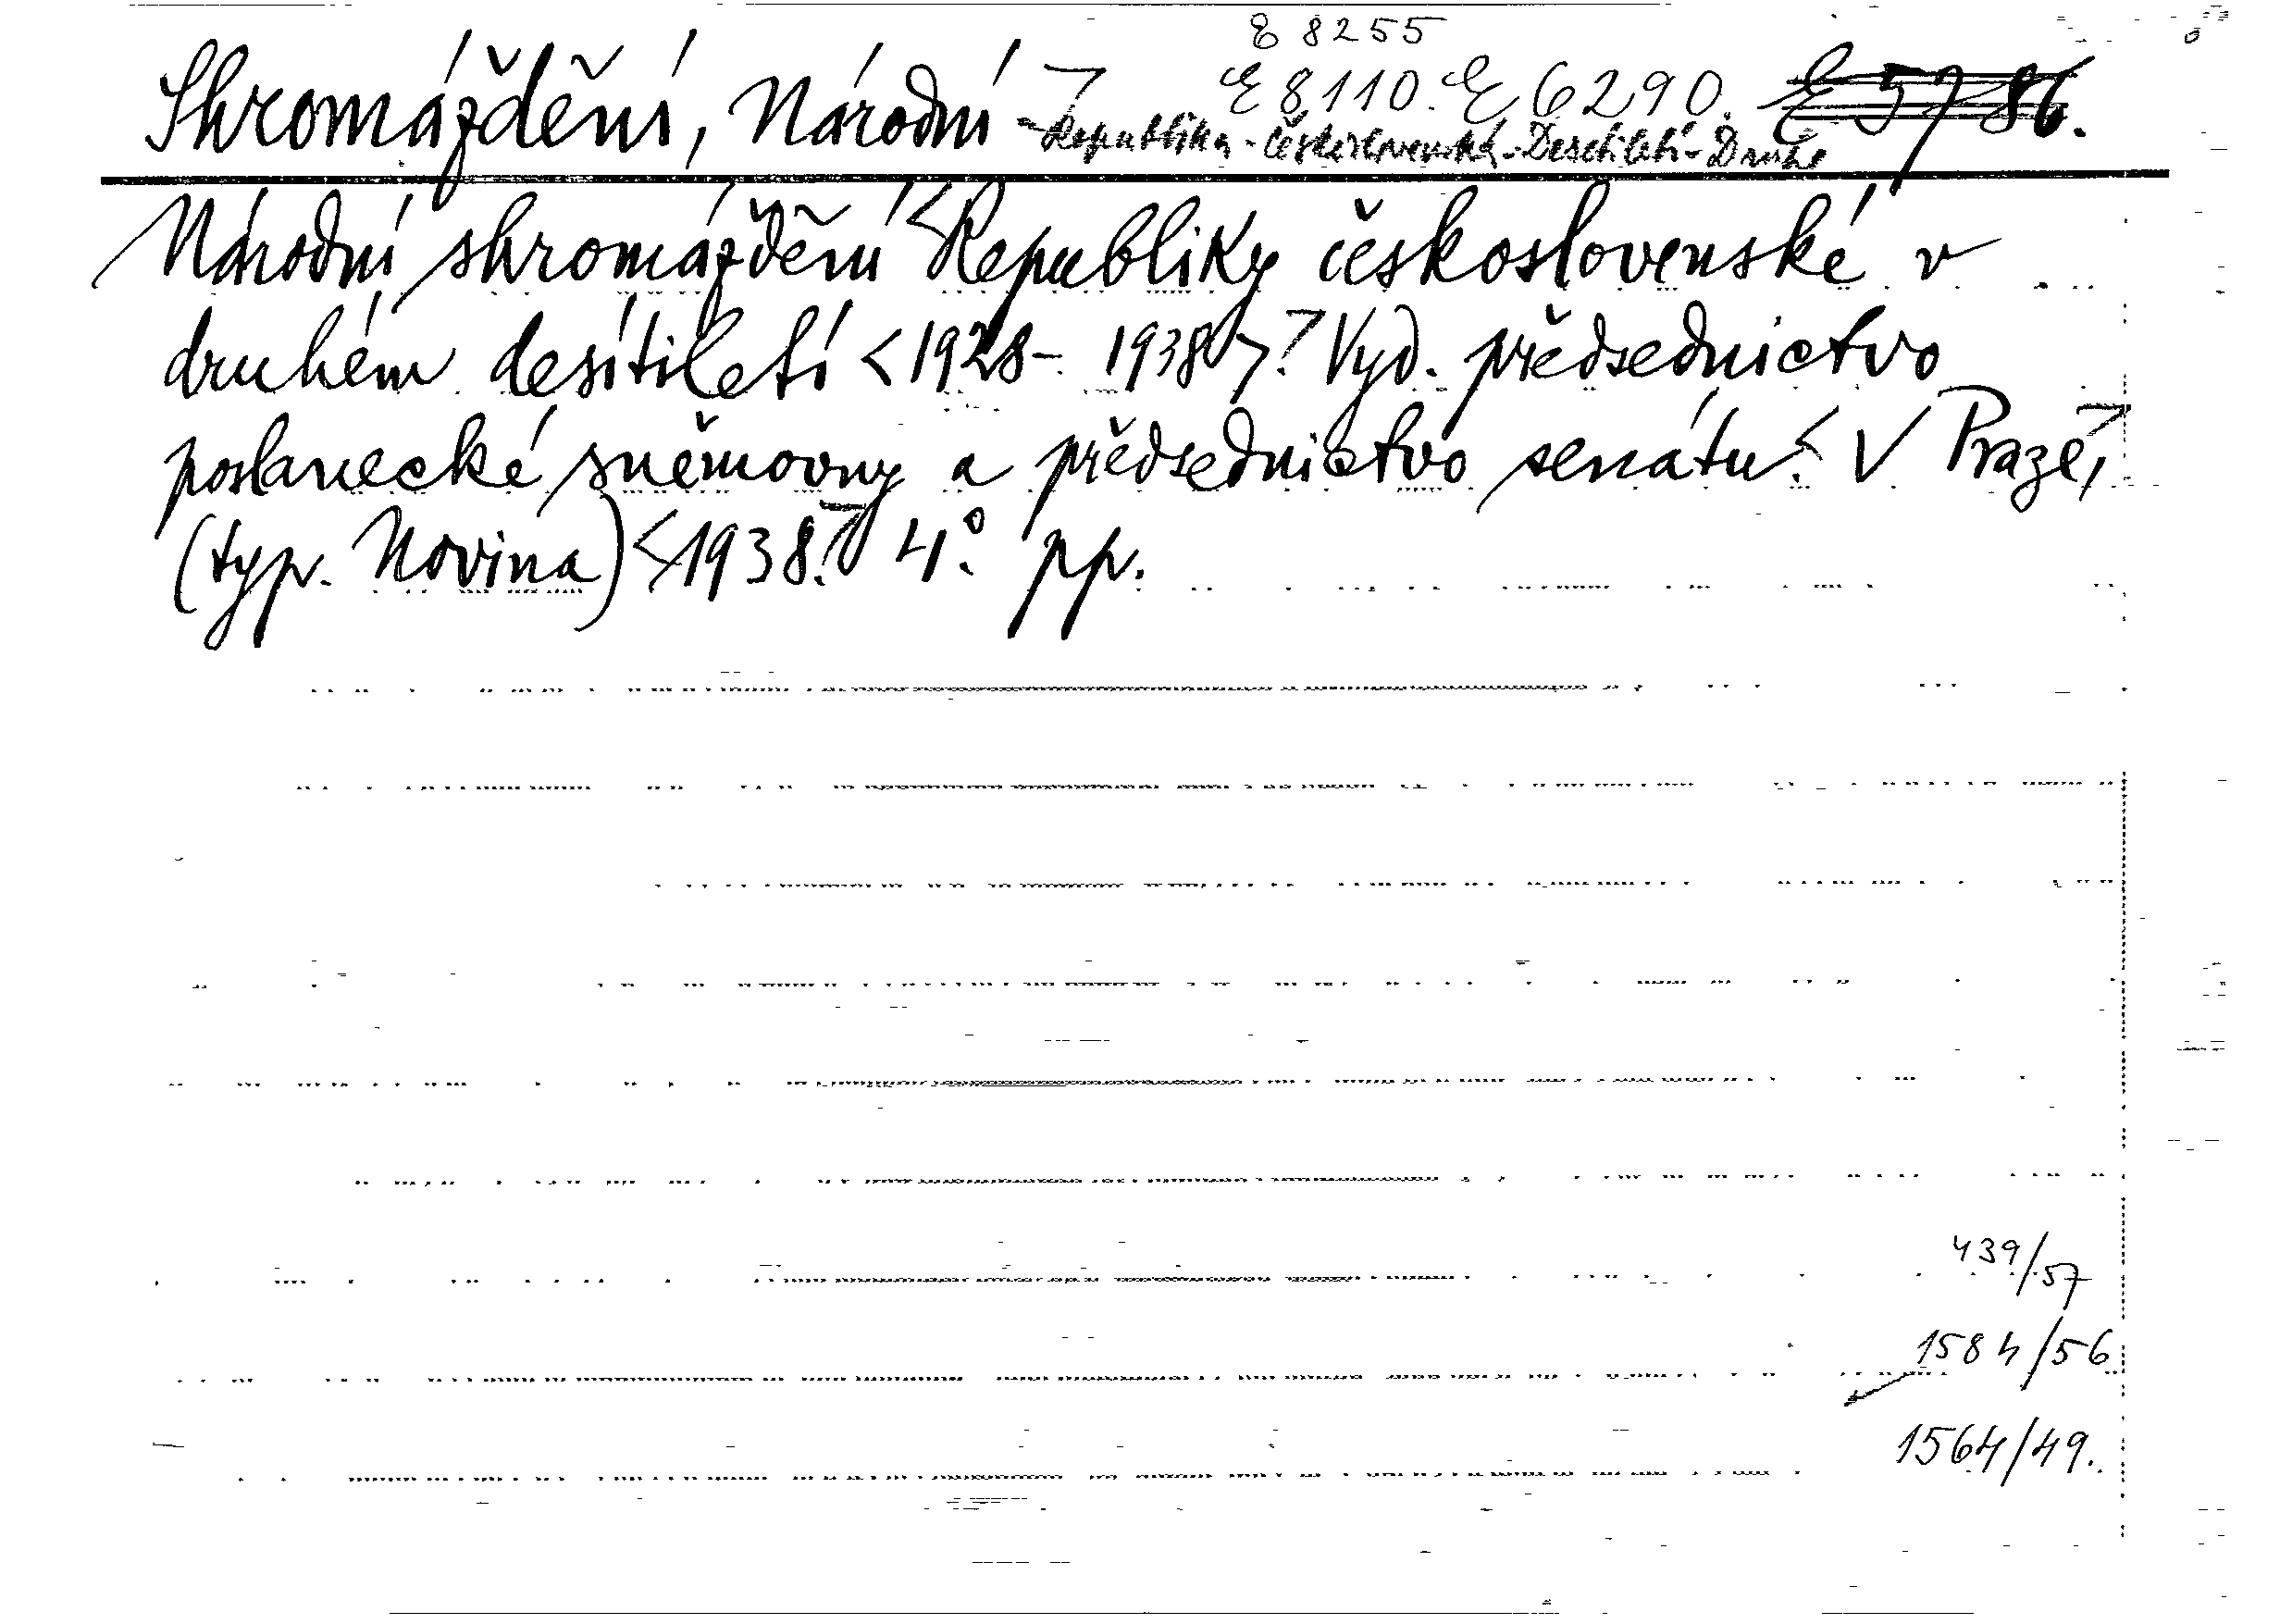 E 8255
Shromáždění, Národní E 8110. E 6290. E 5786.
-Republika-Československá-Desetiletí-Druhé
Národní shromáždění <Republiky československé v
druhém desítiletí <1928-1938>.> Vyd. předsednictvo
poslanecké sněmovny a předsednictvo senátu. < V Praze,>
(typ. Novina) <1938.> 4°. pp.
439/57
1584/56
1564/49.